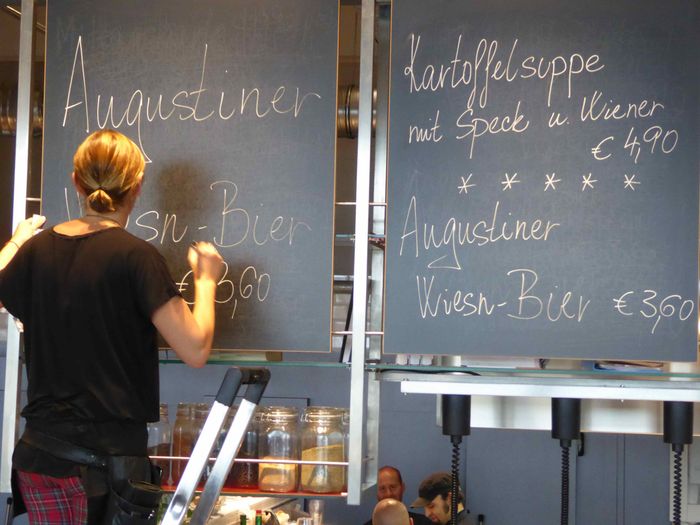 Augustiner
Wiesn-Bier
€3,60
Kartoffelsuppe
mit Speck u. Wiener
€ 4,90
* * * * *
Augustiner
Wiesn-Bier € 3,60